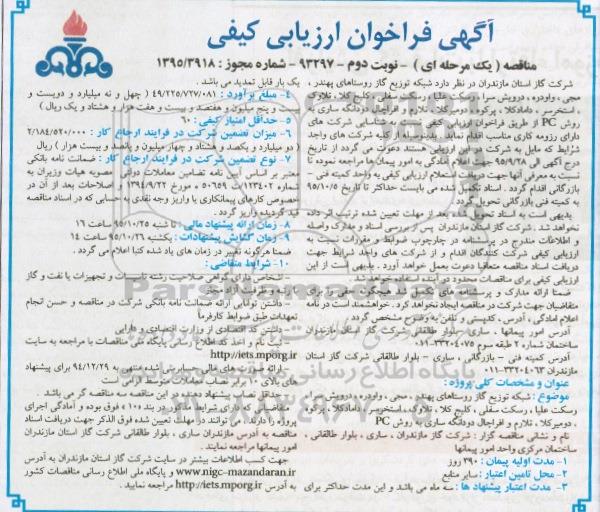 آگهی فراخوان ارزیابی کیفی
مناقصه ( یک مرحله ای ) - نوبت دوم - ۹۳۲۹۷ - شماره مجوز : ۱۳۹۵/۳۹۱۸
شرکت گاز استان مازندران در نظر دارد شبکه توزیع گاز روستاهای پهندر ،
مجی ، واودره ، درویش سرا ، رسکت علیا ، رسکت سفلی ، کلیج کلا ، تلاوک
، استخرسر ، دامادکلا ، پرکوه ، دومیرکلا ، تلارم و افراچال دودانگه ساری به
روش PC از طریق فراخوان ارزیابی کیفی نسبت به شناسایی شرکت های
دارای رزومه کاری مناسب اقدام نماید . بدینوسیله از کلیه شرکت های واجد
شرایط که مایل به شرکت در این ارزیابی هستند دعوت می گردد از تاریخ
درج آگهی الی ۹۵/۹/۲۸ جهت اعلام آمادگی به امور پیمان ها مراجعه نموده تا
نسبت به معرفی آنها جهت دریافت استعلام ارزیابی کیفی به واحد کمیته فنی -
بازرگانی اقدام گردد . اسناد تکمیل شده می بایست حداکثر تا تاریخ ۹۵/۱۰/۵
به کمیته فنی بازرگانی تحویل گردد .
بدیهی است به اسناد تحویل شده بعد از مهلت تعیین شده ترتیب اثر داده
نخواهد شد . شرکت گاز استان مازندران پس از بررسی اسناد و مدارک واصله
و اطلاعات مندرج در پرسشنامه در چارچوب ضوابط و مقررات نسبت به
ارزیابی کیفی شرکت کنندگان اقدام و از شرکت های واجد شرایط جهت
دریافت اسناد مناقصه متعاقبا دعوت بعمل خواهد آورد . بدیهی است از این
ارزیابی کیفی برای مناقصات محدود در آینده استفاده خواهد شد .
ضمنا ارائه مدارک و پرسشنامه های تکمیل شده هیچگونه حقی را برای
متقاضیان جهت شرکت در مناقصه ایجاد نخواهد کرد . خواهشمند است در نامه
اعلام آمادگی ، آدرس ، کدپستی و تلفن به وضوح مشخص گردد .
آدرس امور پیمانها : ساری ، بلوار طالقانی شرکت گاز استان مازندران
ساختمان شماره ۲ طبقه سوم ۳۳۲۰۴۰۷۵-۰۱۱
آدرس کمیته فنی - بازرگانی : ساری - بلوار طالقانی شرکت گاز استان
مازندران ۳۳۲۰۴۰۶۳-۰۱۱
عنوان و مشخصات کلی پروژه :
موضوع : شبکه توزیع گاز روستاهای پهندر ، مجی ، واودره ، درویش سرا ،
رسکت علیا ، رسکت سفلی ، کلیج کلا ، تلاوک ، استخرسر ، دامادکلا ، پرکوه
، دومیرکلا ، تلارم و افراچال دودانگه ساری به روش PC
نام و نشانی مناقصه گزار : شرکت گاز مازندران ، ساری ، بلوار طالقانی ،
ساختمان مرکزی واحد امور پیمانها
۱- مدت اولیه پیمان : ۳۹۰ روز
۲- محل تامین اعتبار : سایر منابع
۳- مدت اعتبار پیشنهاد ها : سه ماه می باشد و این مدت حداکثر برای
یک بار قابل تمدید می باشد .
۴- مبلغ برآورد : ۴۹/۲۲۵/۷۲۷/۰۸۱ ( چهل و نه میلیارد و دویست و
بیست و پنج میلیون و هفتصد و بیست و هفت هزار و هشتاد و یک ریال )
۵- حداقل امتیاز کیفی : ۶۰
۶- میزان تضمین شرکت در فرایند ارجاع کار : ۲/۱۸۴/۵۲۰/۰۰۰
( دو میلیارد و یکصد و هشتاد و چهار میلیون و پانصد و بیست هزار ) ریال
۷- نوع تضمین شرکت در فرایند ارجاع کار : ضمانت نامه بانکی
معتبر بر اساس آیین نامه تضامین معاملات دولتی مصوبه هیات وزیران به
شماره ۱۲۳۴۰۲/ت ۵۰۶۵۹ ه مورخ ۱۳۹۴/۹/۲۲ و اصلاحات بعد از آن در
خصوص کارهای پیمانکاری یا واریز وجه نقدی به حسابی که در اسناد مناقصه
قید گردیده واریز گردد .
۸- زمان ارائه پیشنهاد مالی : تا شنبه ۹۵/۱۰/۲۵ ساعت ۱۶
۹- زمان گشایش پیشنهادات : یکشنبه ۹۵/۱۰/۲۶ ساعت ۱۴
ضمنا هرگونه تغییر در زمان های یاد شده کتبا اعلام می گردد .
۱۰- شرایط متقاضی :
- اشخاص دارای گواهی صلاحیت رشته تاسیسات و تجهیزات یا نفت و گاز
- داشتن توانایی ارائه ضمانت نامه بانکی شرکت در مناقصه و حسن انجام
تعهدات طبق ضوابط کارفرما
- داشتن کد اقتصادی از وزارت اقتصادی و دارایی
- ثبت نام و اخذ کد اطلاع رسانی پایگاه ملی مناقصات با مراجعه به سایت
http://iets.mporg.ir
- ارائه صورت های مالی حسابرسی شده منتهی به ۹۴/۱۲/۲۹ برای پیشنهاد
های بالای ۱۰ برابر نصاب معاملات متوسط الزامی است
- حداقل نصاب پیشنهاد دهنده در این مناقصه سه مناقصه گر می باشد .
متقاضیانی که دارای شرایط مذکور در بند «۱۰» فوق بوده و آمادگی اجرای
پروژه را دارند ، می توانند در مهلت تعیین شده فوق الذکر جهت دریافت اسناد
مناقصه به آدرس مازندران ساری ، بلوار طالقانی شرکت گاز استان مازندران
امور پیمانها مراجعه نمایند .
جهت کسب اطلاعات بیشتر در سایت شرکت گاز استان مازندران به آدرس
www.nigc-mazandaran.ir و پایگاه ملی اطلاع رسانی مناقصات کشور
به آدرس http://iets.mporg.ir مراجعه نمایید .